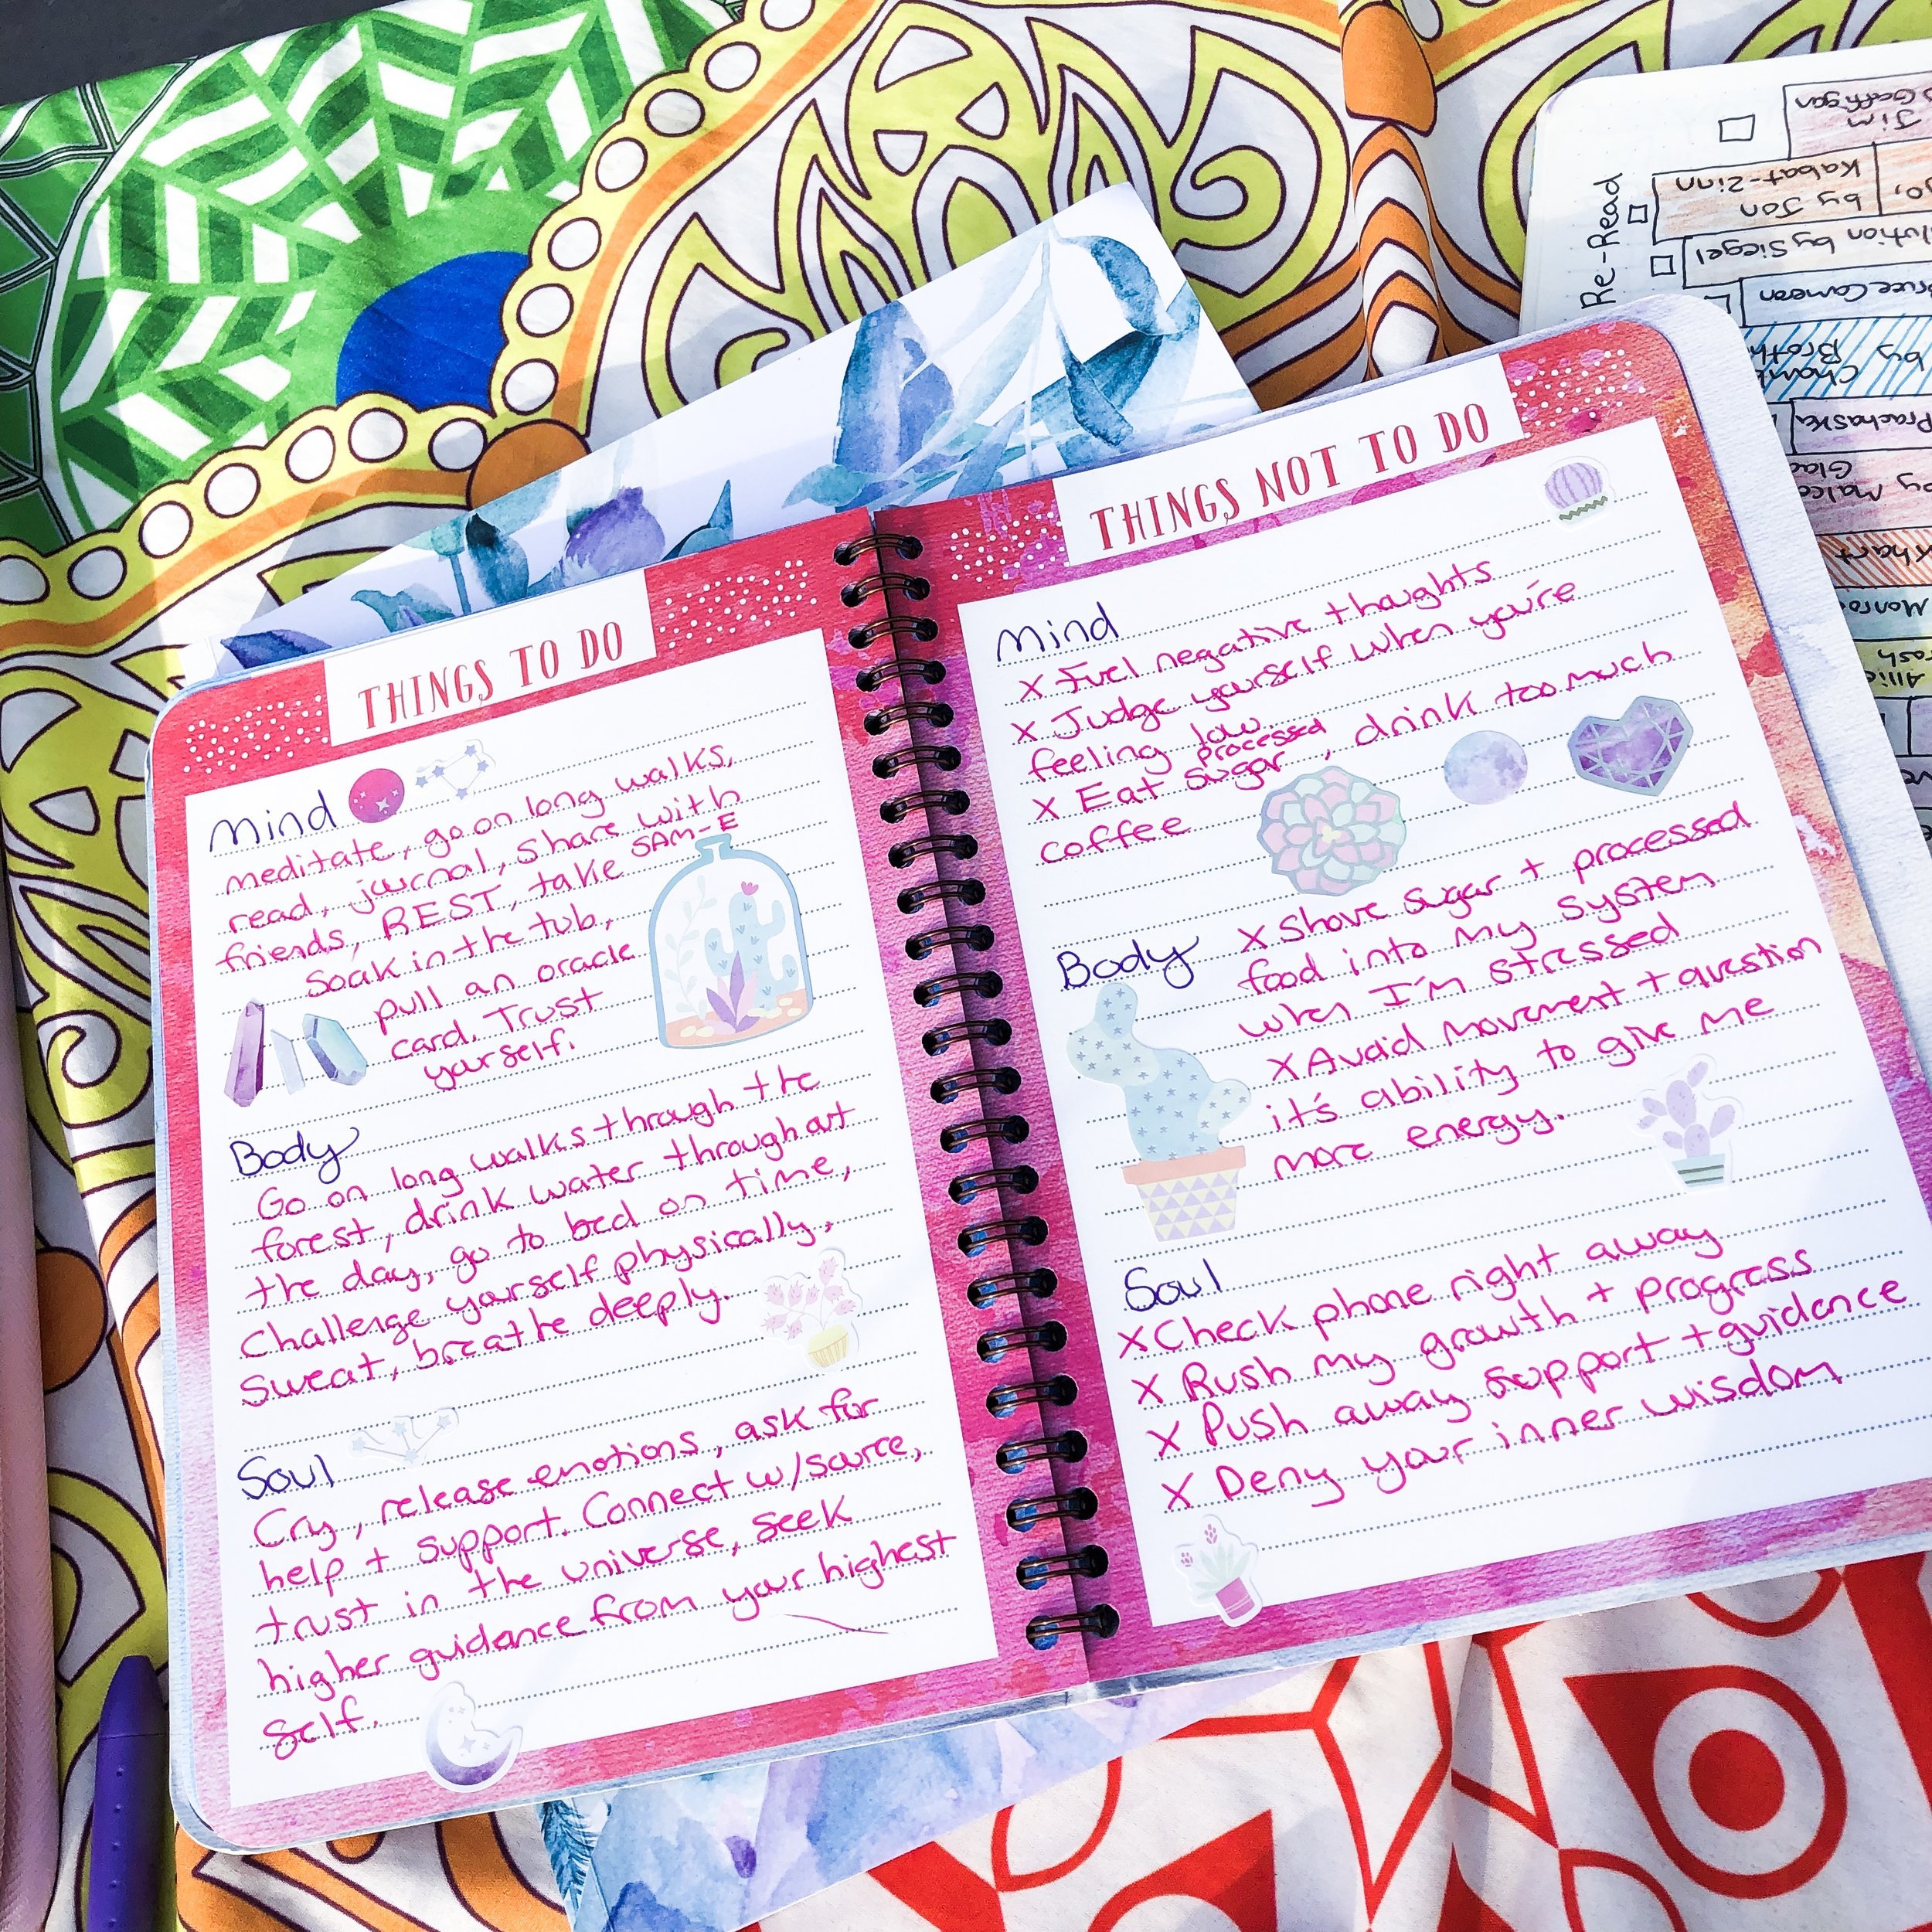 THINGS TO DO
Mind
meditate, go on long walks,
read, journal, share with
friends, REST, take SAM-E
Soak in the tub,
pull an oracle
card. Trust
yourself.
Body
Go on long walks through the
forest, drink water throughout
the day, go to bed on time,
Challenge yourself physically,
Sweat, breathe deeply.
Soul
Cry, release emotions, ask for
help + support. Connect w/source,
trust in the universe, seek
higher guidance from your highest
self.
THINGS NOT TO DO
Mind
x Fuel negative thoughts
x Judge yourself when you're
feeling low
processed
x Eat sugar, drink too much
coffee
Body x Shove sugar + processed
food into my system
when I'm stressed
x Avoid movement + question
it's ability to give me
more energy.
Soul
x Check phone right away
x Rush my growth + progress
x Push away support + guidance
x Deny your inner wisdom
Re-Read
Jim
Gaffigan
by Jon
Kabat-Zinn
by Siegel
Cameron
by